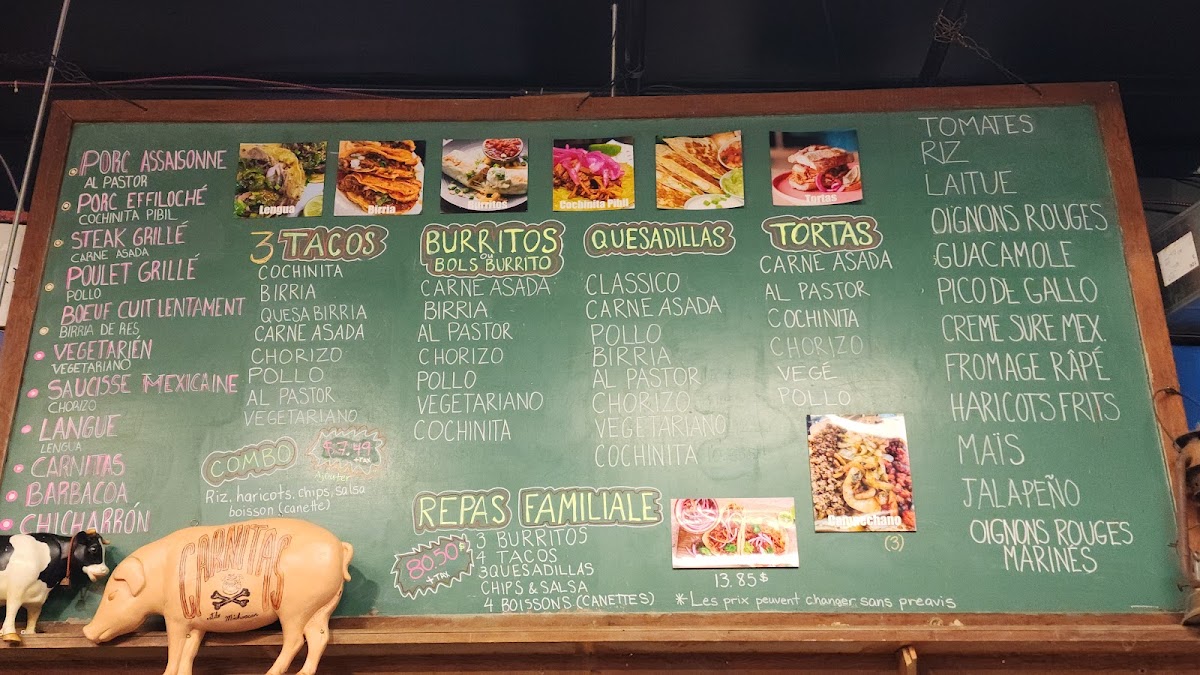 PORC ASSAISONNE
AL PASTOR
PORC EFFILOCHÉ
COCHINITA PIBIL
STEAK GRILLÉ
CARNE ASADA
POULET GRILLÉ
POLLO
BOEUF CUIT LENTAMENT
BIRRIA DE RES
VEGETARIÉN
VEGETARIANO
SAUCISSE MEXICAINE
CHORIZO
LANGUE
LENGUA
CARNITAS
BARBACOA
CHICHARRÓN
Lengua
Birria
Burritos
Cochinita Pibil
Tortas
3 TACOS
COCHINITA
BIRRIA
QUESABIRRIA
CARNE ASADA
CHORIZO
POLLO
AL PASTOR
VEGETARIANO
COMBO
$7.49
+TAX
Ajouter
Riz, haricots, chips, salsa
boisson (canette)
BURRITOS
ou
BOLS BURRITO
CARNE ASADA
BIRRIA
AL PASTOR
CHORIZO
POLLO
VEGETARIANO
COCHINITA
QUESADILLAS
CLASSICO
CARNE ASADA
POLLO
BIRRIA
AL PASTOR
CHORIZO
VEGETARIANO
COCHINITA
TORTAS
CARNE ASADA
AL PASTOR
COCHINITA
CHORIZO
VEGÉ
POLLO
(3)
REPAS FAMILIALE
80.50$
+TAX
3 BURRITOS
4 TACOS
3 QUESADILLAS
CHIPS & SALSA
4 BOISSONS (CANETTES)
13.85$
*Les prix peuvent changer sans preavis
TOMATES
RIZ
LAITUE
OIGNONS ROUGES
GUACAMOLE
PICO DE GALLO
CREME SURE MEX.
FROMAGE RÂPÉ
HARICOTS FRITS
MAÏS
JALAPEÑO
OIGNONS ROUGES
MARINÉS
CARNITAS